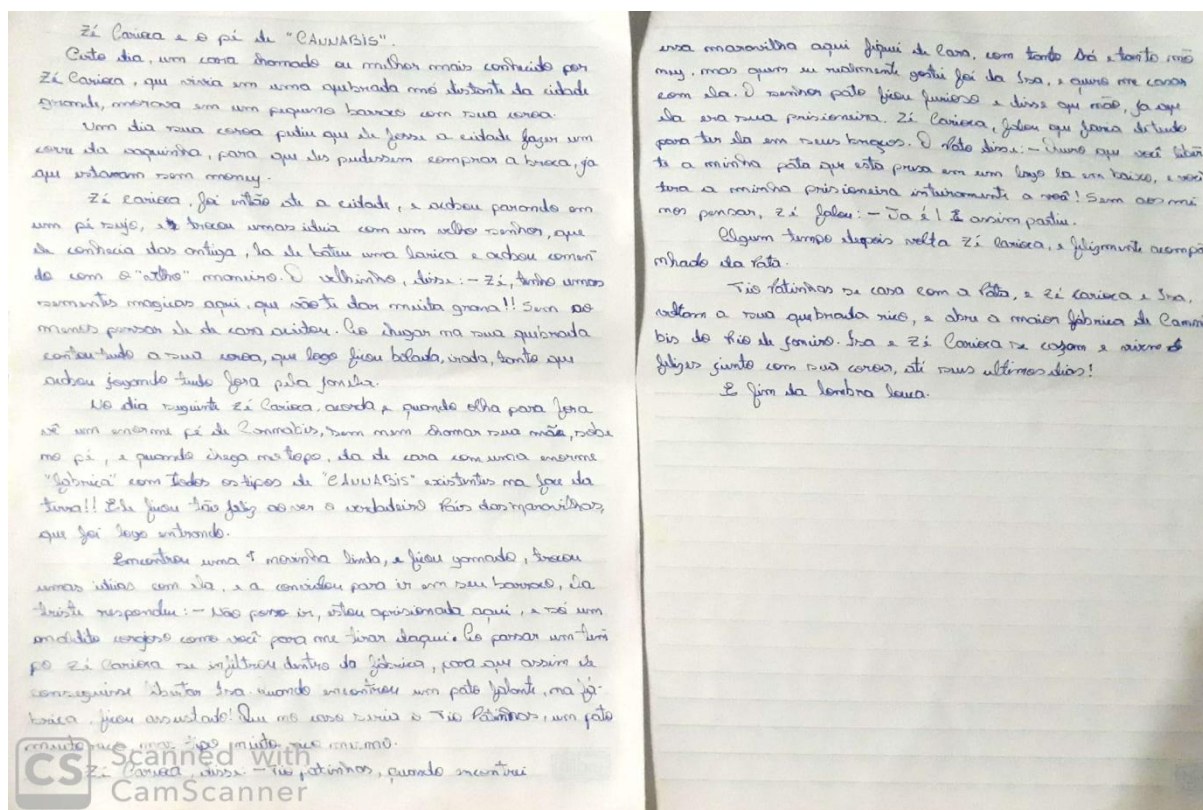 Zé Carioca e o pé de "CANNABIS".
Certo dia, um cara chamado ou milhor mais conhecido por
Zé Carioca, que vivia em uma quebrada mó distante da cidade
grande, morava em um pequeno barraco com sua coroa.
Um dia sua coroa pediu que ele fosse a cidade fazer um
corre da vaquinha, para que eles pudessem comprar a broca, ja
que estavam sem money.
Zé carioca, foi então ate a cidade, e acabou parando em
um pé sujo, e trocou umas ideia com um velho senhor, que
ele conhecia das antiga, la ele bateu uma larica e acabou comen
do com o "velho" maneiro. O velhinho, disse: - Zé, tenho umas
sementes magicas aqui, que vão te dar muita grana!! Sem ao
menos pensar ele de cara aceitou. Ao chegar na sua quebrada
contou tudo a sua coroa, que logo ficou bolada, irada, tanto que
acabou jogando tudo fora pela janela.
No dia seguinte Zé Carioca, acorda e quando olha para fora
vê um enorme pé de Cannabis, sem nem chamar sua mãe, sobe
no pé, e quando chega no topo, da de cara com uma enorme
"fábrica" com todos os tipos de "CANNABIS" existentes na face da
terra!! Ele ficou tão feliz ao ver o verdadeiro País das maravilhas,
que foi logo entrando.
Encontrou uma moreninha linda, e ficou gamado, trocou
umas ideias com ela, e a convidou para ir em seu barraco, Ela
triste respondeu: - Não posso ir, estou aprisionada aqui, e só um
maldito corajoso como você para me tirar daqui. Ao passar um tem
po Zé Carioca se infiltrou dentro da fábrica, para que assim ele
conseguisse libertar Isa. quando encontrou um pato falante, na fá-
brica, ficou assustado! Que no caso seria o Tio Patinhas, um pato
muito rico, mas tipo muito rico mesmo.
Zé Carioca, disse: - Tio patinhas, quando encontrei
essa maravilha aqui fiquei de Cara, com tanto
mas quem eu realmente gostei foi da Isa, e quero me casar
com ela. O senhor pato ficou furioso e disse que não, ja que
ela era sua prisioneira. Zé Carioca, falou que faria de tudo
para ter ela em seus braços. O Pato disse: - Quero que você liber
te a minha pata que está presa em um lago la em baixo, e você
tera a minha prisioneira inteiramente a você! Sem ao me
nos pensar, Zé falou: - Ja é! E assim partiu.
Algum tempo depois volta Zé Carioca, e felizmente acompa
nhado da Pata.
Tio Patinhas se casa com a Pata, e Zé carioca e Isa,
voltam a sua quebrada rico, e abre a maior fábrica de Canna
bis do Rio de janeiro. Isa e Zé Carioca se casam e vivem
felizes junto com sua coroa, até seus ultimos dias!
E fim da lombra louca.
CS Scanned with
CamScanner